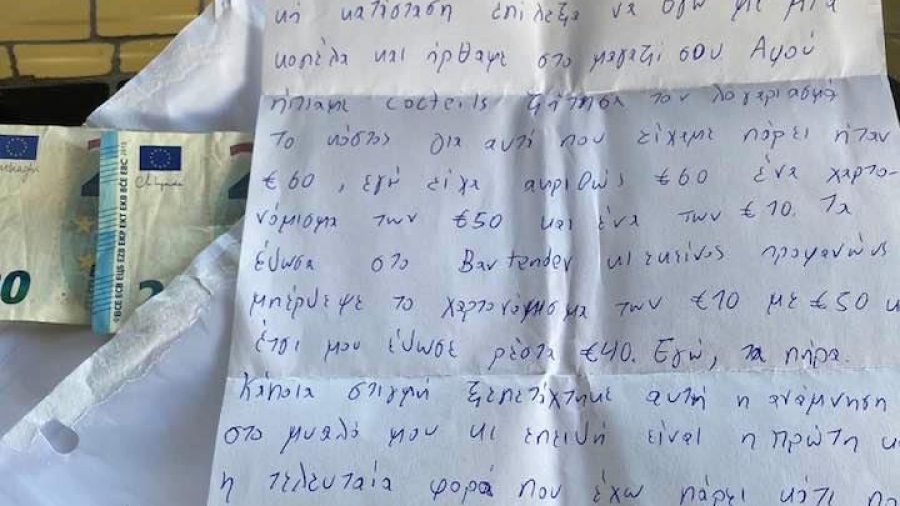 κή κατάσταση επίλεξα να βγω με μια
κοπέλα και ήρθαμε στο μαγαζί σου. Αφού
ήπιαμε cocteils ζήτησα τον λογαριασμό
το κόστος για αυτά που είχαμε πάρει ήταν
€60, εγώ είχα ακριβώς €60 ένα χαρτο-
νόμισμα των €50 και ένα των €10. Τα
έδωσα στο Bartender κι εκείνος προφανώς
μπέρδεψε το χαρτονόμισμα των €10 με €50 κ
έτσι μου έδωσε ρέστα €40. Εγώ, τα πήρα.
Κάποια στιγμή ξεπετάχτηκε αυτή η ανάμνηση
στο μυαλό μου κι επειδή είναι η πρώτη κ
η τελευταία φορά που έχω πάρει κάτι πο
BCE ECB ЕЦБ EZB EKP EKT EKB BĊE EBC